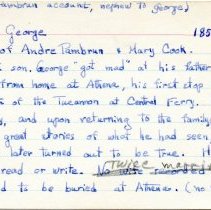 Tambrun account, nephew to George)
George 185
of Andre Tambrun & Mary Cook.
son. George "got mad" at his father
from home at Athena, his first stop
of the Tucannon at Central Ferry.
, and upon returning to the family
great stories of what he had seen
later turned out to be true. H
read or write. No wife recorded
Twice marri
d to be buried at Athena. (no